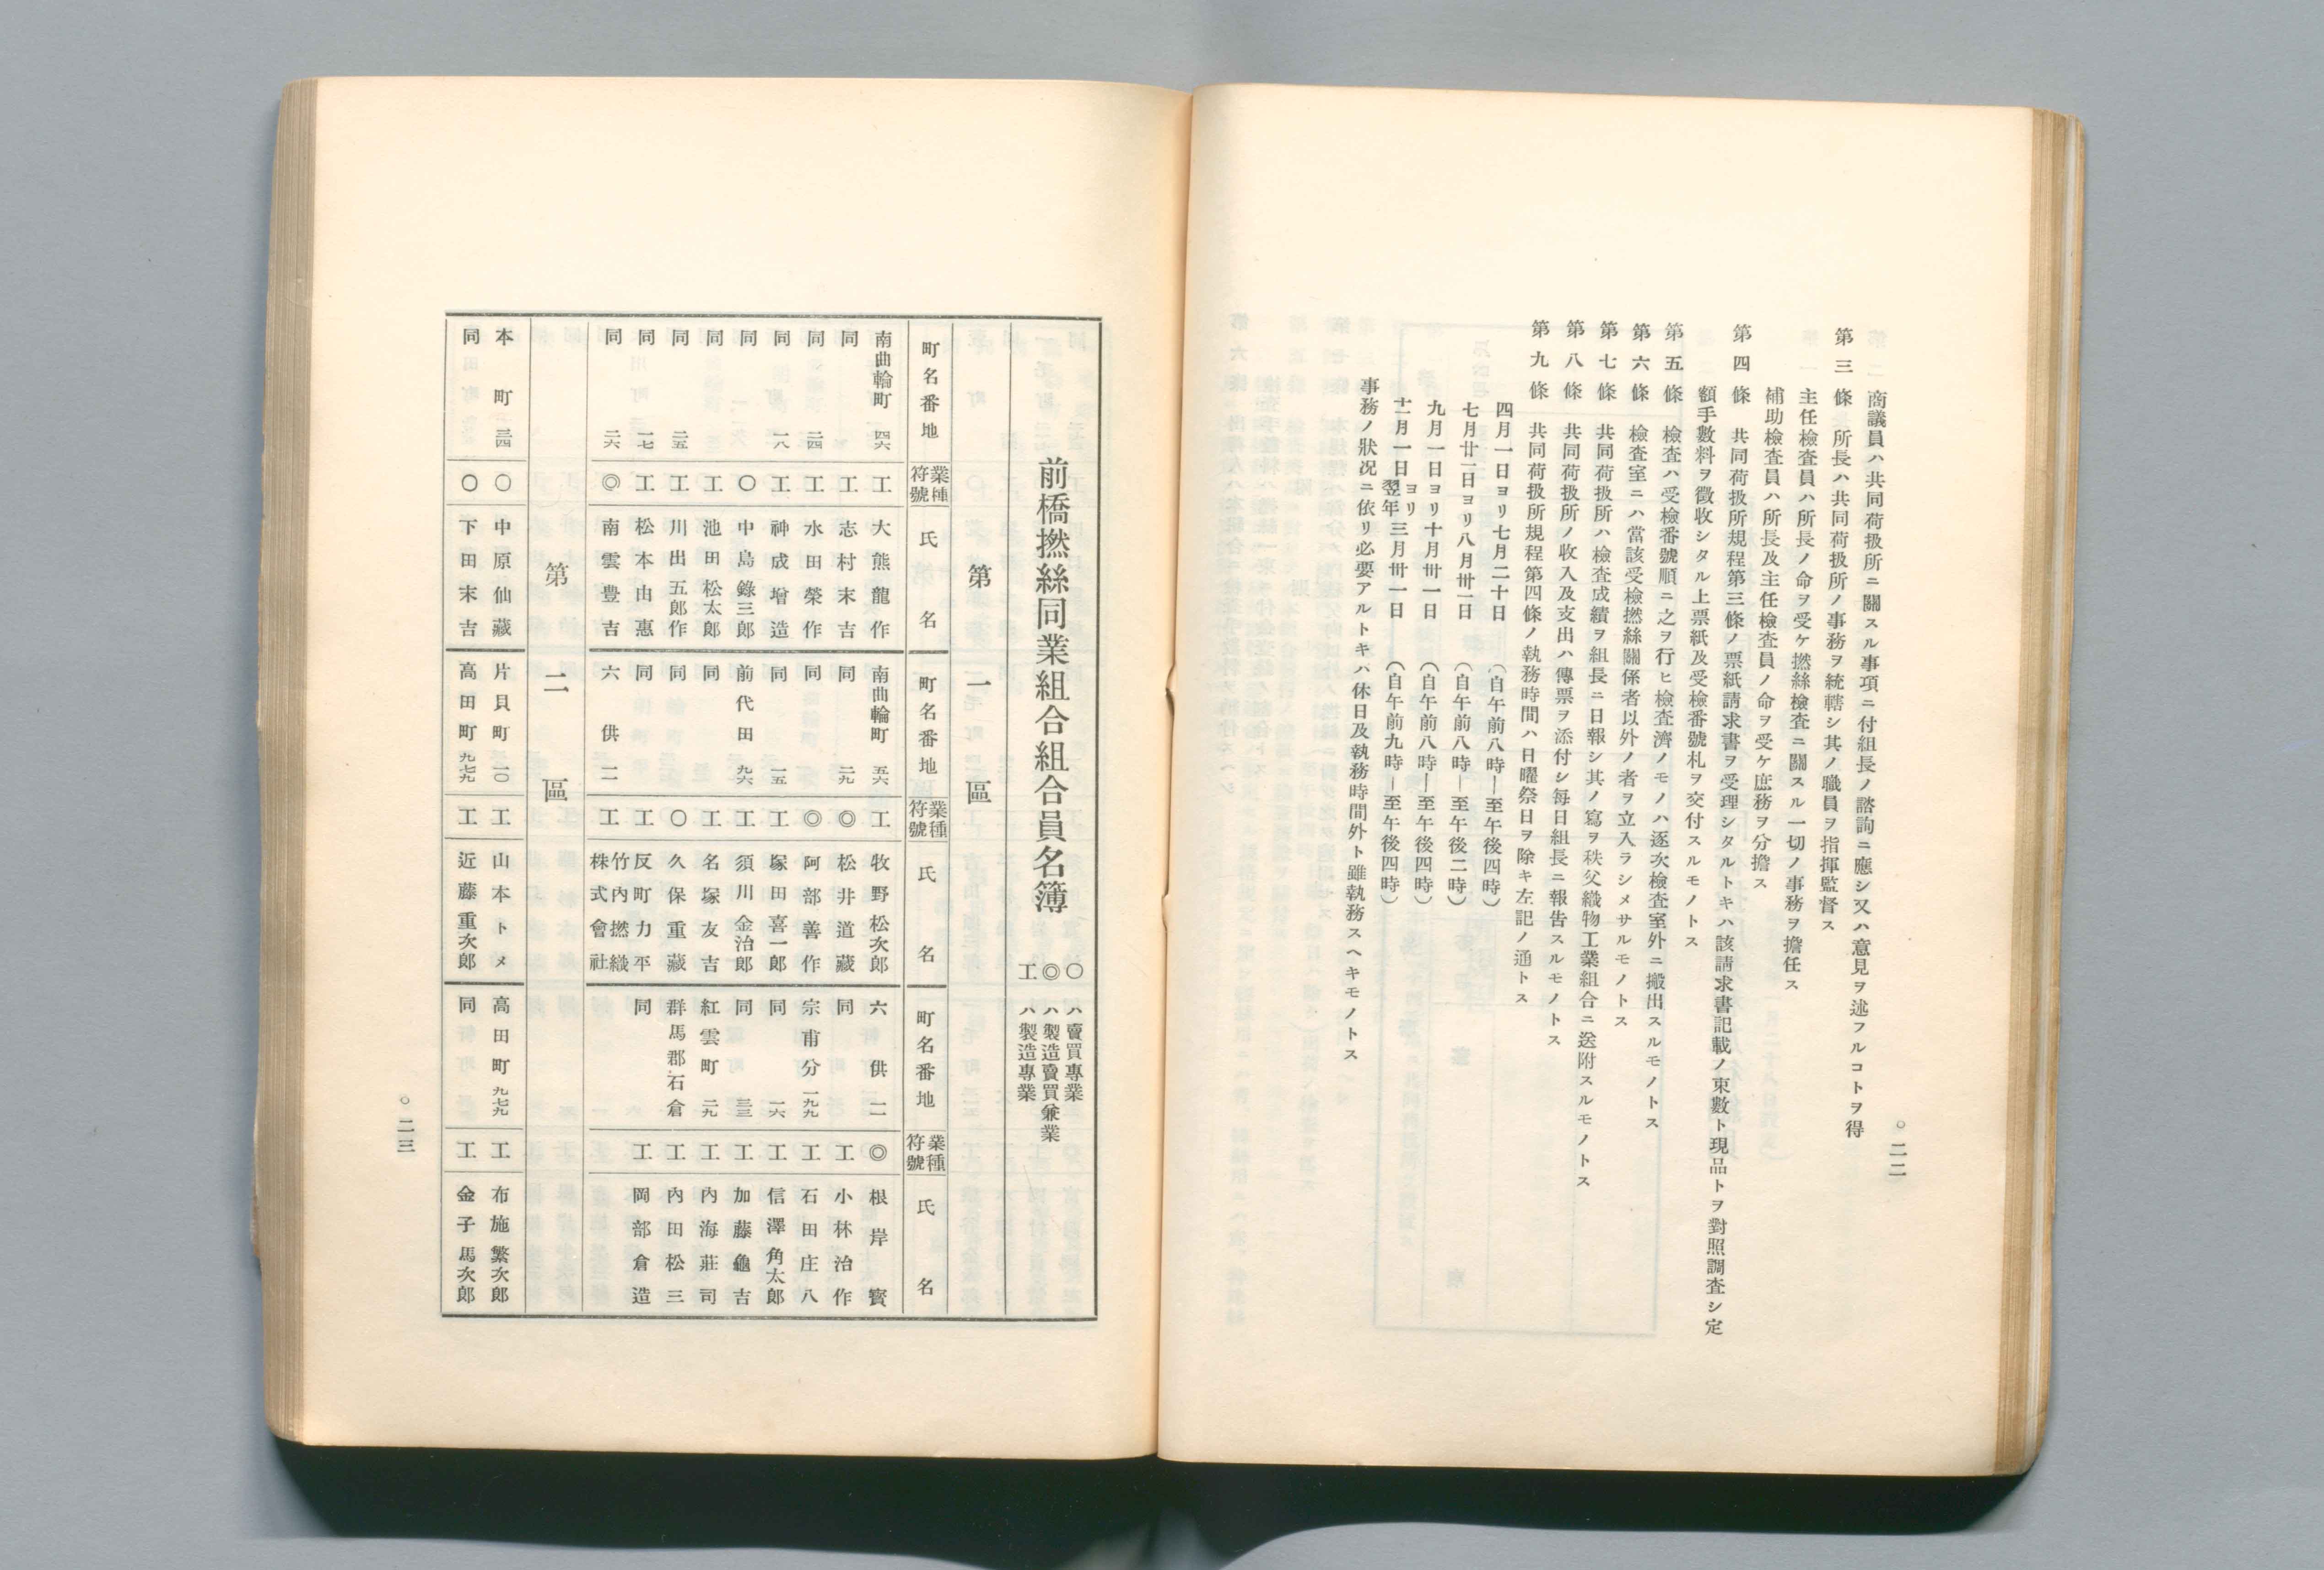 商議員ハ共同荷扱所ニ關スル事項ニ付組長ノ諮詢ニ應シ又ハ意見ヲ述フルコトヲ得
第三條 所長ハ共同荷扱所ノ事務ヲ統轄シ其ノ職員ヲ指揮監督ス
主任檢査員ハ所長ノ命ヲ受ケ撚絲檢査ニ關スル一切ノ事務ヲ擔任ス
補助檢査員ハ所長及主任檢査員ノ命ヲ受ケ庶務ヲ分擔ス
第四條 共同荷扱所規程第三條ノ票紙請求書ヲ受理シタルトキハ該請求書記載ノ束數ト現品トヲ對照調査シ定
額手數料ヲ徵收シタル上票紙及受檢番號札ヲ交付スルモノトス
第五條 檢査ハ受檢番號順ニ之ヲ行ヒ檢査濟ノモノハ逐次檢査室外ニ搬出スルモノトス
第六條 檢査室ニハ當該受檢撚絲關係者以外ノ者ヲ立入ラシメサルモノトス
第七條 共同荷扱所ハ檢査成績ヲ組長ニ日報シ其ノ寫ヲ秩父織物工業組合ニ送附スルモノトス
第八條 共同荷扱所ノ收入及支出ハ傳票ヲ添付シ每日組長ニ報告スルモノトス
第九條 共同荷扱所規程第四條ノ執務時間ハ日曜祭日ヲ除キ左記ノ通トス
四月一日ヨリ七月二十日 (自午前八時―至午後四時)
七月廿一日ヨリ八月卅一日 (自午前八時―至午後二時)
九月一日ヨリ十月卅一日 (自午前八時―至午後四時)
十一月一日ヨリ翌年三月卅一日 (自午前九時―至午後四時)
事務ノ狀況ニ依リ必要アルトキハ休日及執務時間外ト雖執務スヘキモノトス
○二二
前橋撚絲同業組合組合員名簿
○ハ賣買專業
◎ハ製造賣買兼業
工ハ製造專業
第一區
町名番地 業種符號 氏名 町名番地 業種符號 氏名 町名番地 業種符號 氏名
南曲輪町 四六 工 大熊龍作 南曲輪町 五六 工 牧野松次郎 六供 一一 ◎ 根岸實
同 工 志村末吉 同 二九 ◎ 松井道藏 同 工 小林治作
同 二四 工 水田榮作 同 ◎ 阿部善作 宗甫分 一九九 工 石田庄八
同 一八 工 神成增造 同 一五 工 塚田喜一郎 同 一六 工 信澤角太郎
同 ○ 中島錄三郎 前代田 九六 工 須川金治郎 同 三三 工 加藤龜吉
同 工 池田松太郎 同 工 名塚友吉 紅雲町 二九 工 內海莊司
同 二五 工 川出五郎作 同 ○ 久保重藏 群馬郡石倉 工 內田松三
同 一七 工 松本由惠 同 工 反町力平 同 工 岡部倉造
同 二六 ◎ 南雲豊吉 六供 一一 工 竹內撚織株式會社
第二區
本町 三四 ○ 中原仙藏 片貝町 一〇 工 山本トメ 高田町 九七九 工 布施繁次郎
同 ○ 下田末吉 高田町 九七九 工 近藤重次郎 同 工 金子馬次郎
○二三